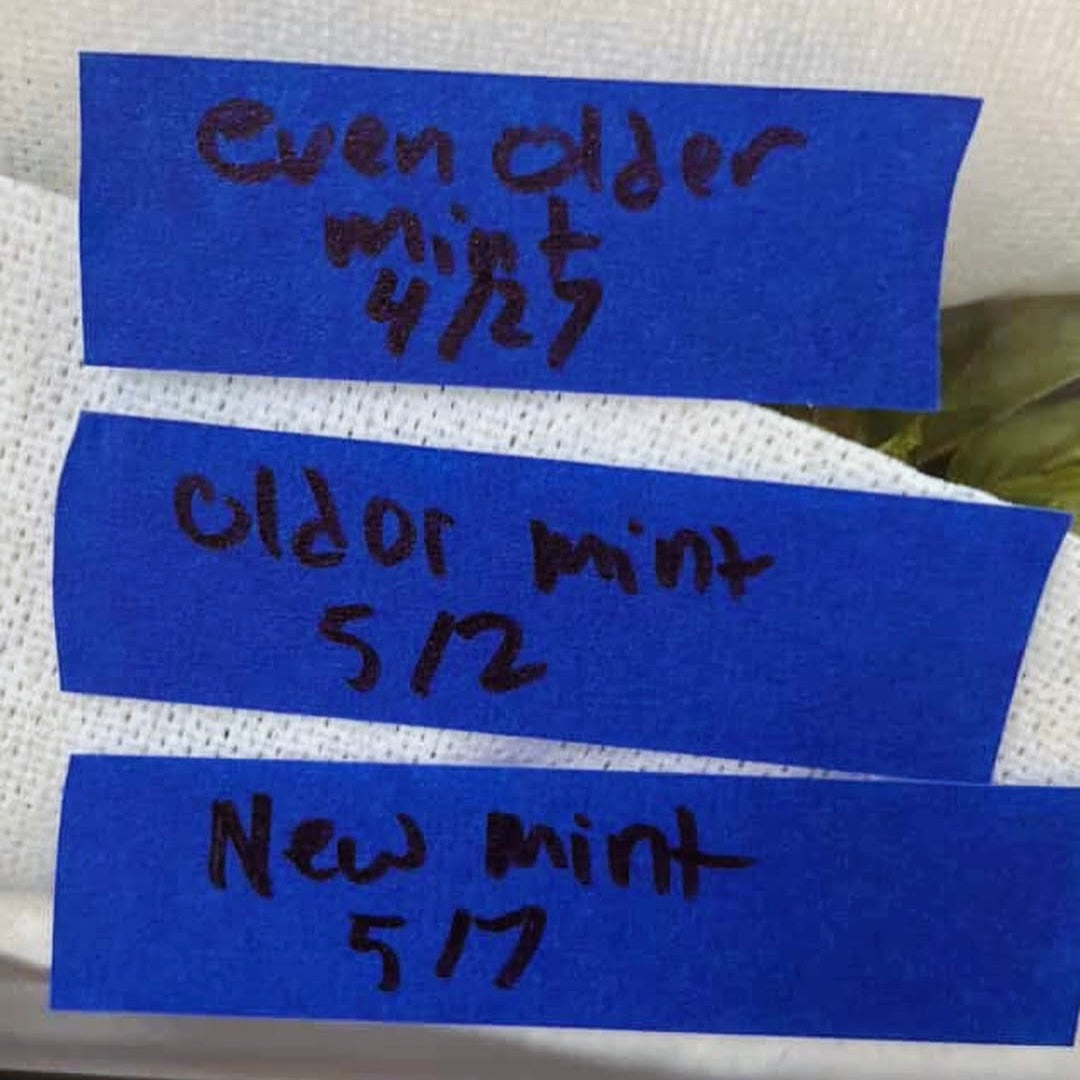 even older
mint
4/27
oldor mint
5/2
New mint
5/7